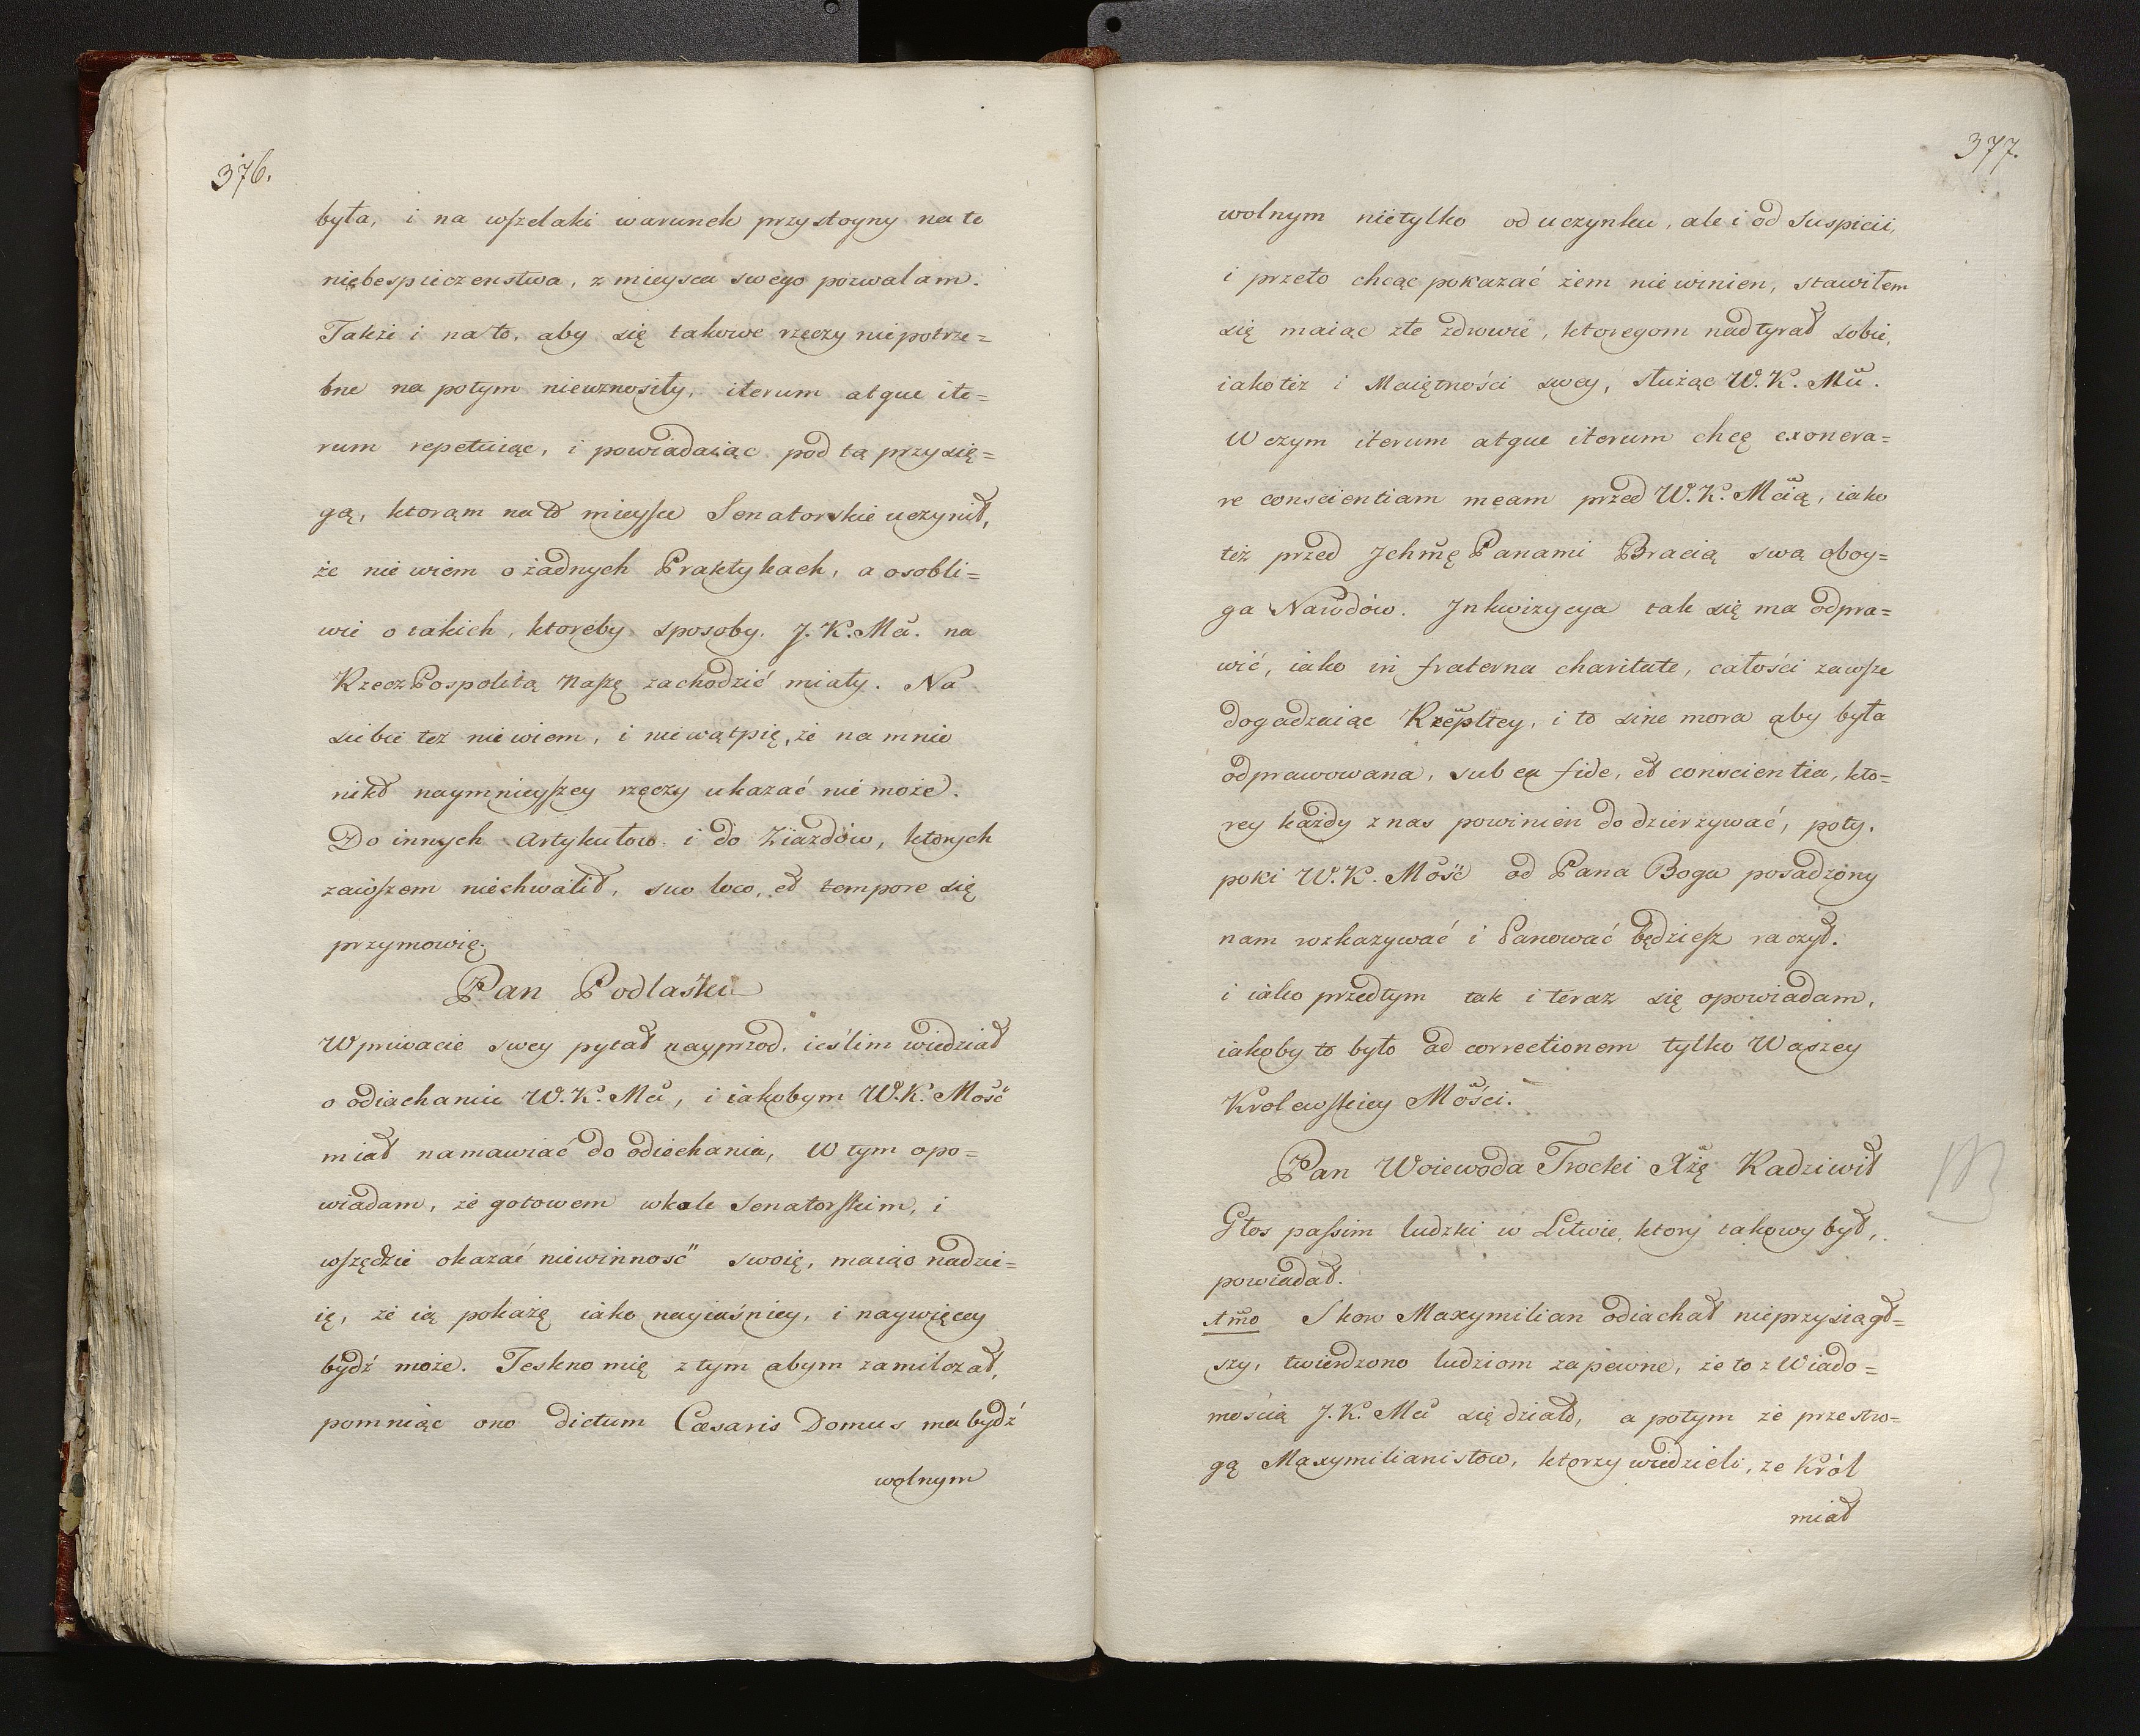 376.
była, i na wszelaki warunek przystoyny na te
niebespieczenstwa, z mieysca swego pozwalam.
Także i na to, aby się takowe rzeczy niepotrze=
bne na potym niewznosiły, iterum atque ite=
rum repetuiąc, i powiadaiąc pod tą przysię=
gą, ktorąm na to mieysce Senatorskie uczynił,
że nie wiem o żadnych Praktykach, a osobli=
wie o takich, ktoreby sposoby J. K. Mci. na
RzeczPospolitą naszę zachodzić miały. Na
siebie też nie wiem, i nie wątpię, że na mnie
nikt naymnieyszey rzeczy ukazać nie może.
Do innych Artykułow i do Ziazdów, ktorych
zawszem niechwalił, suo loco, et tempore się
przymowię.
Pan Podlaski
W priwacie swey pytał nayprzod, ieślim wiedział
o odiachaniu W. K. Mci, i iakobym W. K. Mość
miał namawiać do odiechania, W tym opo=
wiadam, że gotowem w kole Senatorskim, i
wszędzie okazać niewinność swoię, maiąc nadzie=
ię, że ią pokażę iako nayiaśniey, i naywięcey
bydź może. Teskno mię z tym abym zamilczał,
pomniąc ono dictum Cæsaris Domus ma bydź
wolnym
377.
wolnym nietylko od uczynku, ale i od Suspicii,
i przeto chcąc pokazać żem nie winien, stawiłem
się maiąc złe zdrowie, ktoregom nadtyrał sobie,
iakoteż i Maiętności swey, służąc W. K. Mci.
W czym iterum atque iterum chcę exonera=
re conscientiam meam przed W. K. Mcią, iako
też przed Jchmę Panami Bracią swą oboy=
ga Narodów. Jnkwizycya tak się ma odpra=
wić, iako in fraterna charitate, całości zawsze
dogadzaiąc Rzepltey, i to sine mora aby była
odprawowana, sub ea fide, et conscientia, kto=
rey każdy z nas powinien dodzierzywać, poty,
poki W. K. Mość od Pana Boga posadzony
nam rozkazywać i Panować będziesz raczył.
i iako przedtym tak i teraz się opowiadam,
iakoby to było ad correctionem tylko Waszey
Krolewskiey Mości.
Pan Woiewoda Trocki Xżę Radziwił
Głos passim ludzki w Litwie, ktory takowy był,
powiadał.
1mo Skoro Maxymilian odiachał nieprzysiągł=
szy, twierdzono ludziom zapewne, że to z Wiado=
mością J. K. Mci się działo, a potym że przestro=
gą Maxymilianistow, ktorzy wiedzieli, że Król
miał